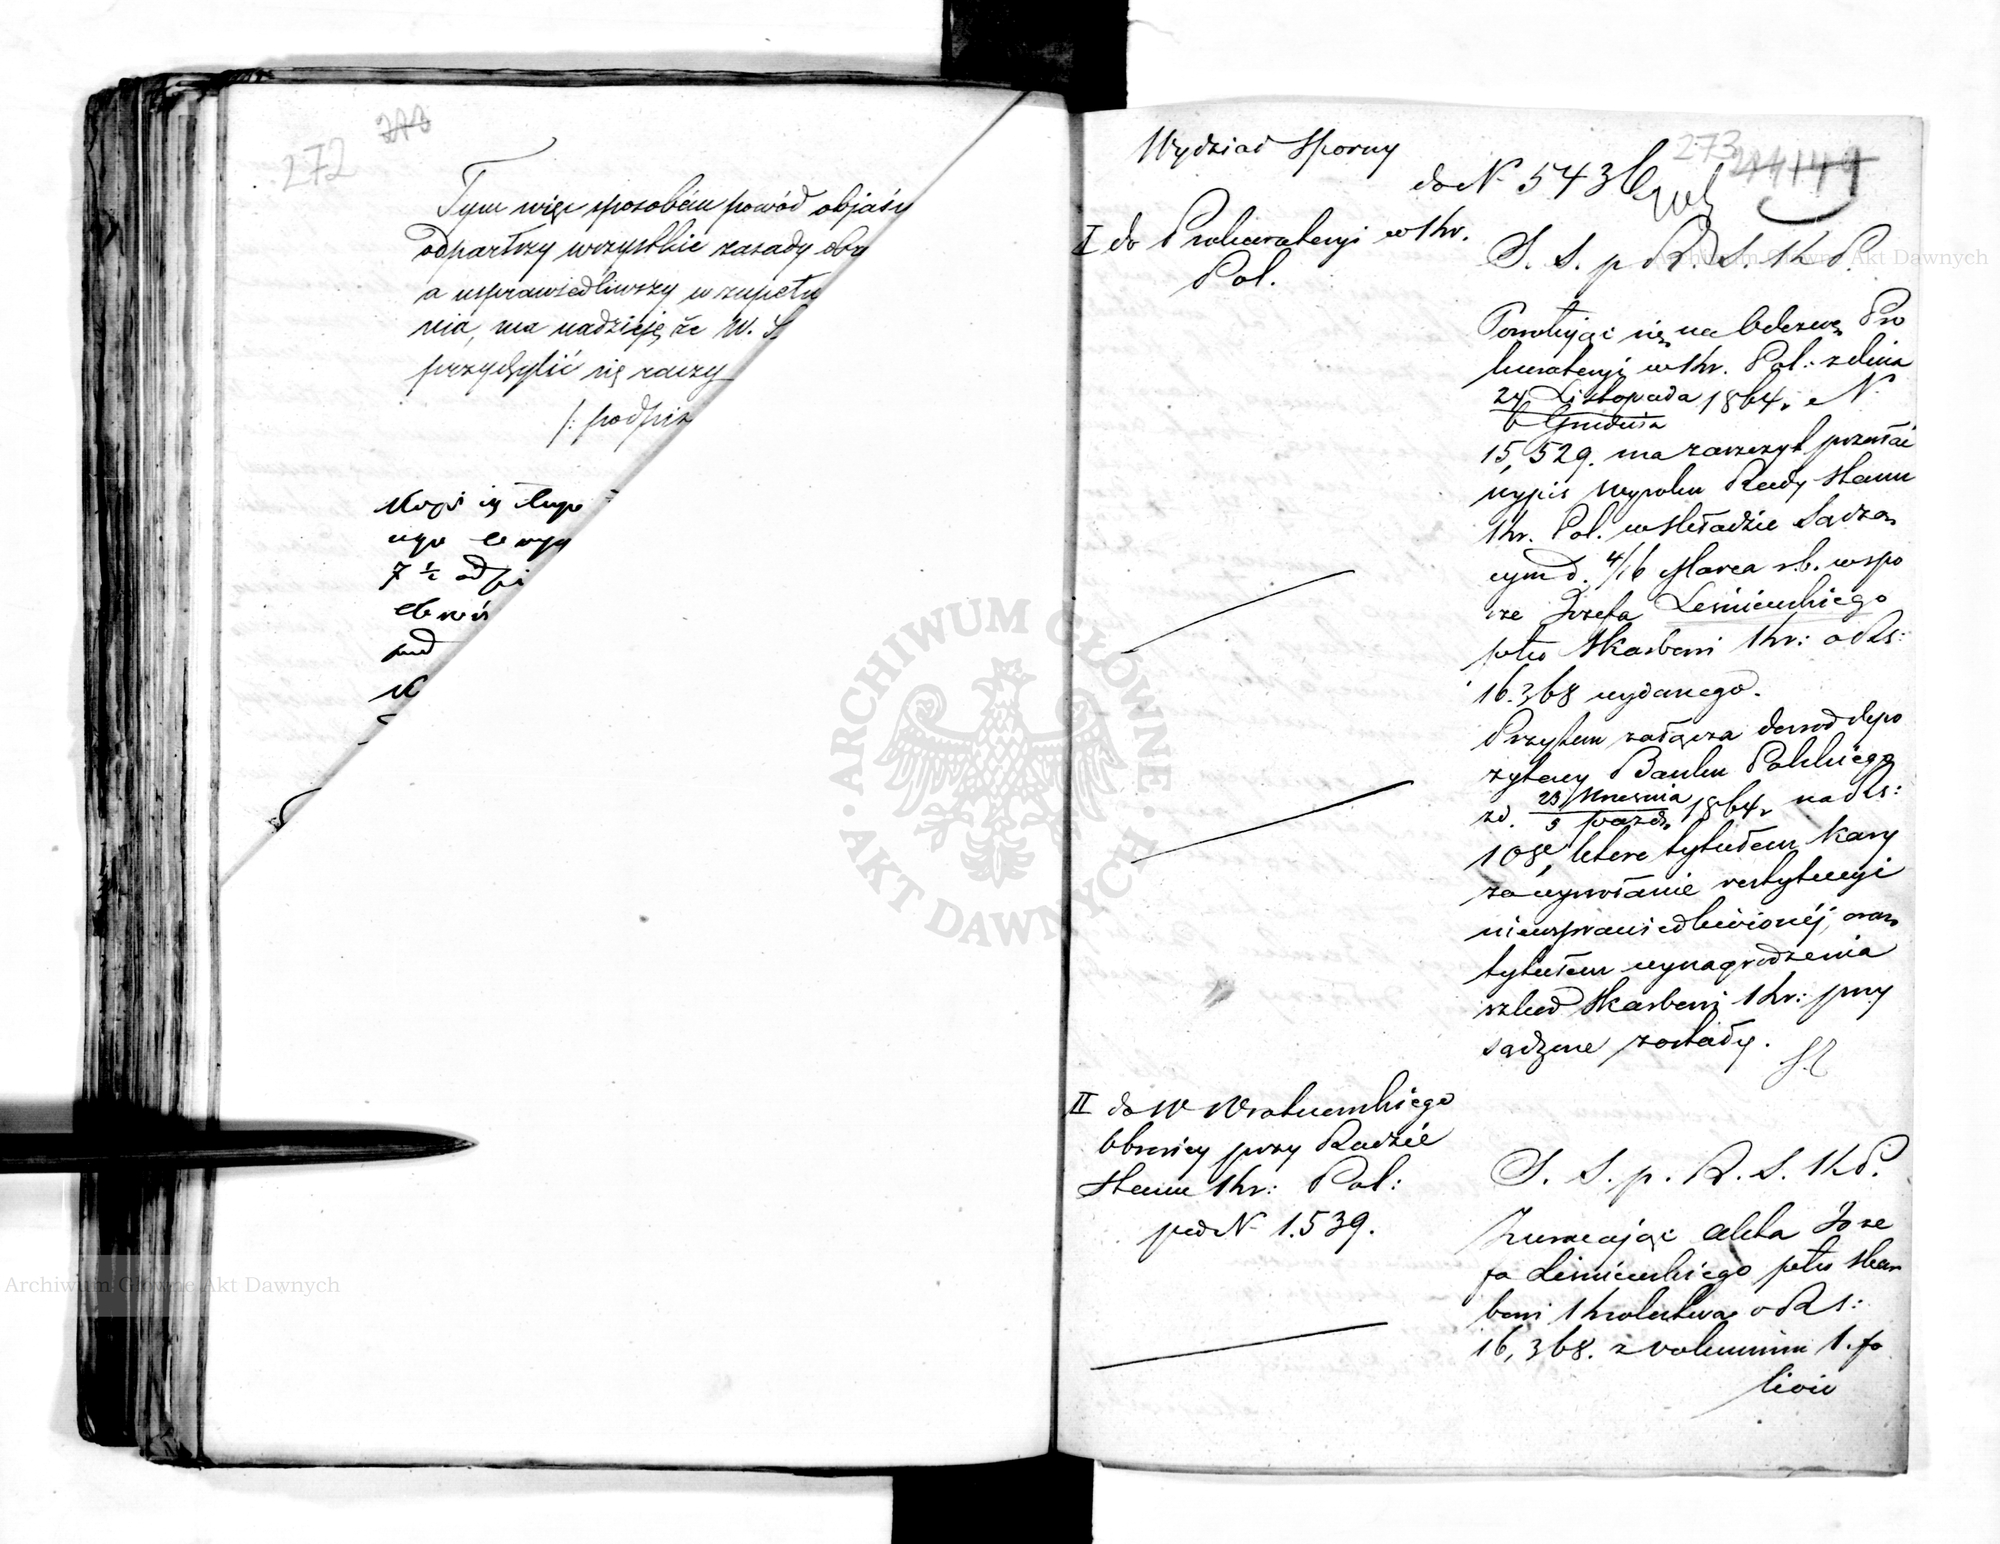 272
Tym więc sposobem powód objaśn
odparłszy wszystkie zasady obr
a usprawiedliwszy w zupełn
nia, ma nadzieję że W. S
przychylić się raczy
/: podpis
7 ½ odpi
pod
273
Wydział Sporny
do N 5436
I do Prokuratoryi w Kr.
Pol.
S. S. p R. S. K P.
Powołując się na Odezwę Pro
kuratoryi w Kr. Pol. z dnia
24 Listopada 1864 r. N
6 Grudnia
15,529. ma zaszczyt przesłać
wypis wyroku Rady Stanu
Kr. Pol. w Składzie Sądzą
cym d. 4/16 Marca r.b. w spo
rze Józefa Leśniewskiego
ptko Skarbowi Kr: o Rs:
16.368 wydanego.
Przytem załącza dowód depo
zytowy Banku Polskiego
z d. 23 Września 1864 r na Rs:
5 Paźdz.
108, które tytułem kary
za wywołanie restytucyi
nieusprawiedliwionéj, oraz
tytułem wynagrodzenia
szkód Skarbowi Kr: przy
sądzone zostały.
II do W Wrotnowskiego
Obrońcy przy Radzie
Stanu Kr: Pol:
pod N 1.539.
S. S. p. R. S. K P.
Zwracając akta Józe
fa Leśniewskiego ptko Skar
bowi Królestwa o Rs:
16,368. z voluminu 1. fo
liów
ARCHIWUM GŁÓWNE AKT DAWNYCH
Archiwum Główne Akt Dawnych
Archiwum Główne Akt Dawnych